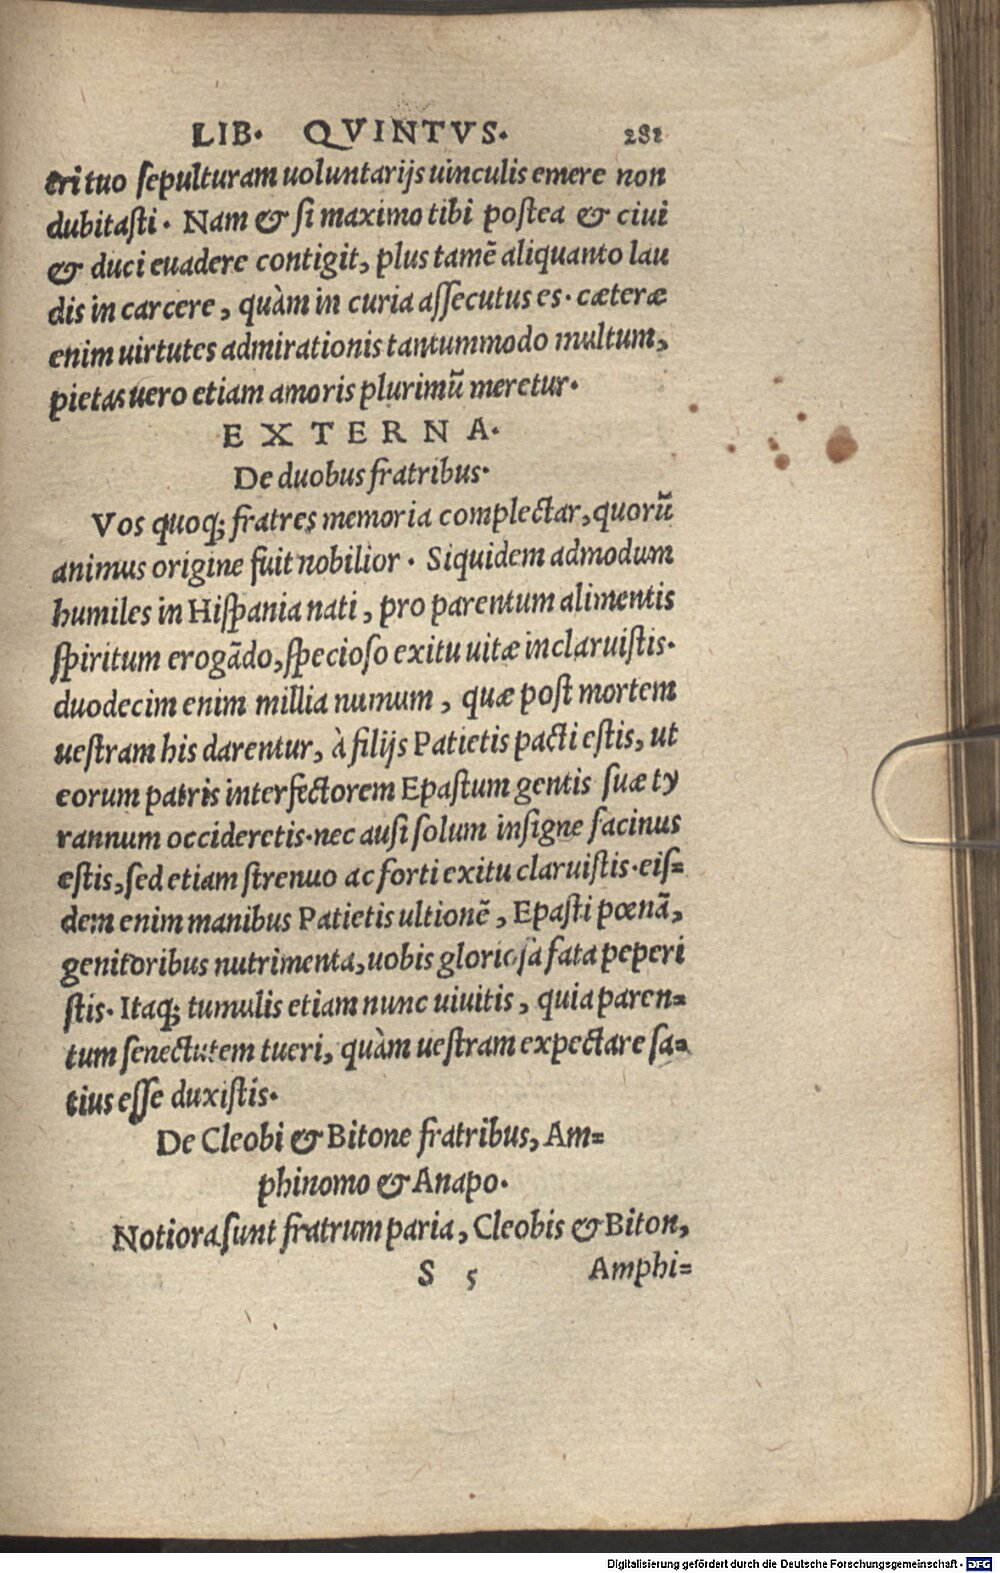 LIB. QVINTVS. 281
tri tuo sepulturam uoluntarijs uinculis emere non
dubitasti. Nam & si maximo tibi postea & ciui
& duci euadere contigit, plus tamē aliquanto lau
dis in carcere, quàm in curia assecutus es. cæteræ
enim uirtutes admirationis tantummodo multum,
pietas uero etiam amoris plurimū meretur.
EXTERNA.
De duobus fratribus.
Vos quoq; fratres memoria complectar, quorū
animus origine fuit nobilior. Siquidem admodum
humiles in Hispania nati, pro parentum alimentis
spiritum erogādo, specioso exitu uitæ inclaruistis.
duodecim enim millia numum, quæ post mortem
uestram his darentur, à filijs Patietis pacti estis, ut
eorum patris interfectorem Epastum gentis suæ ty
rannum occideretis. nec ausi solum insigne facinus
estis, sed etiam strenuo ac forti exitu claruistis. eis=
dem enim manibus Patietis ultionē, Epasti pœnā,
genitoribus nutrimenta, uobis gloriosa fata peperi
stis. Itaq; tumulis etiam nunc uiuitis, quia paren=
tum senectutem tueri, quàm uestram expectare sa=
tius esse duxistis.
De Cleobi & Bitone fratribus, Am=
phinomo & Anapo.
Notiora sunt fratrum paria, Cleobis & Biton,
S 5 Amphi=
Digitalisierung gefördert durch die Deutsche Forschungsgemeinschaft - DFG